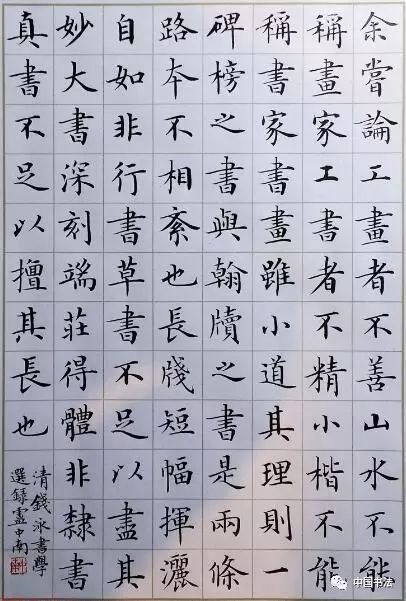 余嘗論工畫者不善山水不能
稱畫家工書者不精小楷不能
稱書家書畫雖小道其理則一
碑榜之書與翰牘之書是兩條
路本不相紊也長牋短幅揮灑
自如非行書草書不足以盡其
妙大書深刻端莊得體非隸書
真書不足以擅其長也
清錢泳書學
選録盧中南
中国书法